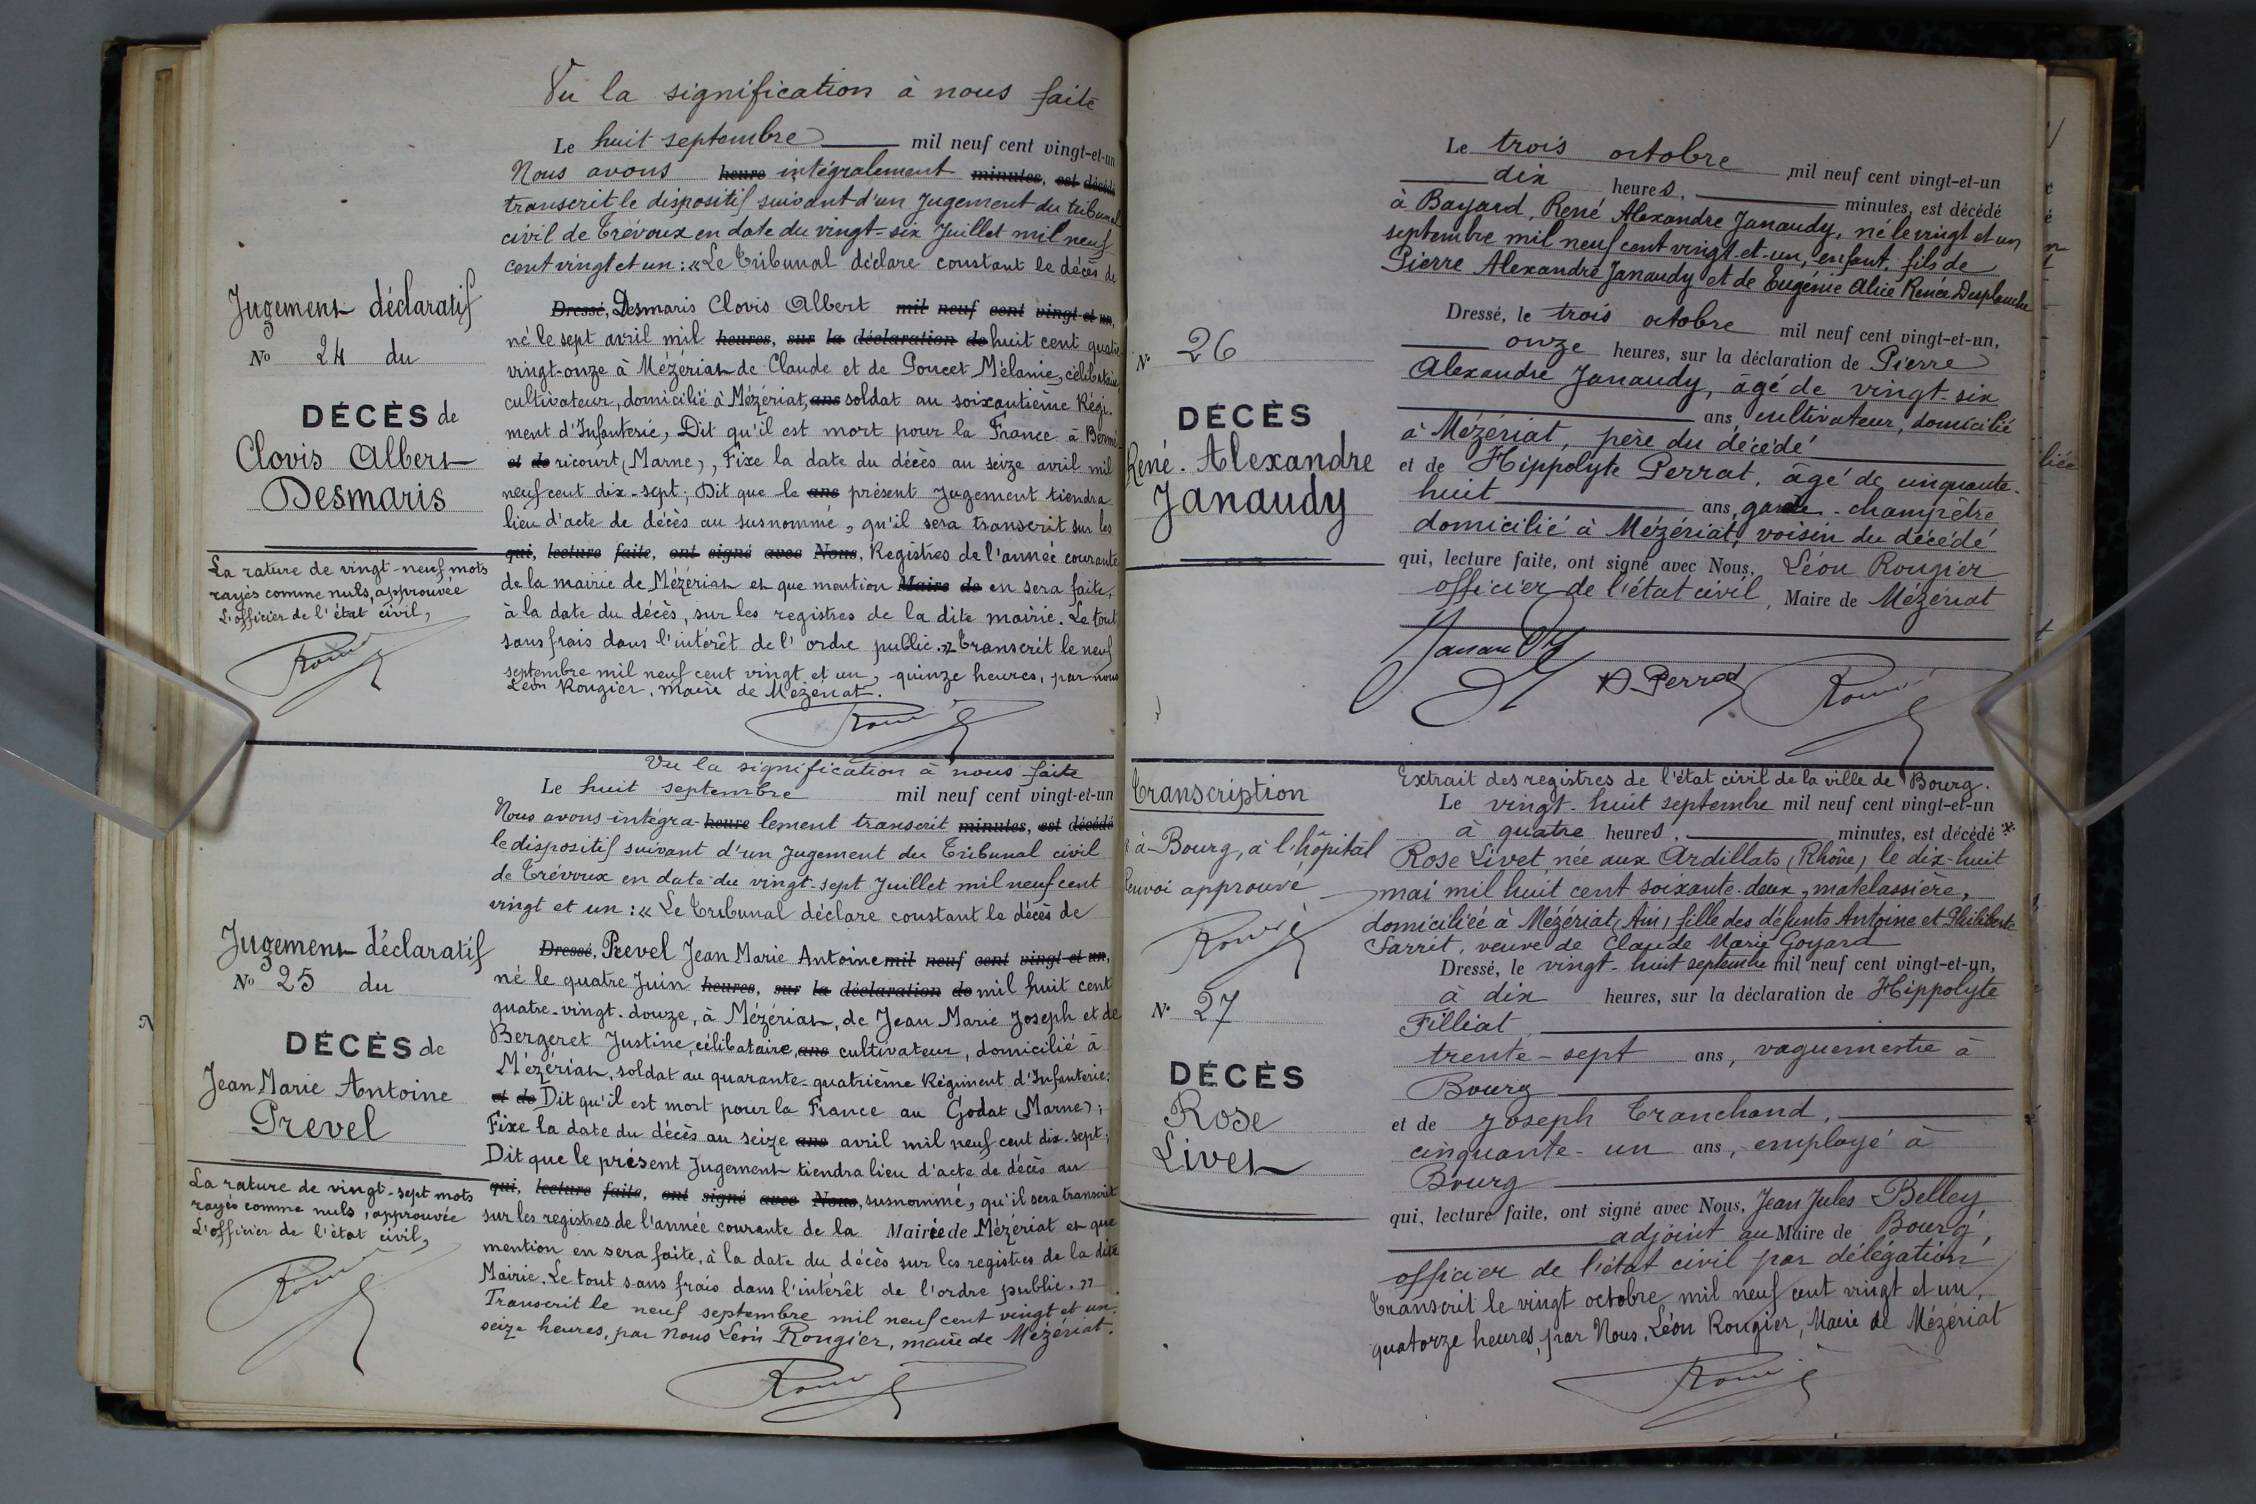 Vu la signification à nous faite
Le huit septembre mil neuf cent vingt-et-un
Nous avons heure intégralement minutes, est décédé
transcrit le dispositif suivant d'un Jugement du tribunal
civil de Trévoux en date du vingt-six Juillet mil neuf
cent vingt et un : « Le Tribunal déclare constant le décès de
Jugement déclaratif
No 24 du
DÉCÈS de
Clovis Albert
Desmaris
La rature de vingt-neuf mots
rayés comme nuls, approuvée
L'officier de l'état civil,
Dressé, Desmaris Clovis Albert mil neuf cent vingt et un,
né le sept avril mil heures, sur la déclaration de huit cent quatre
vingt-onze à Mézériat de Claude et de Poncet Mélanie, célibataire
cultivateur, domicilié à Mézériat, ans soldat au soixantième Régi-
ment d'Infanterie, Dit qu'il est mort pour la France à Bermé-
et de ricourt (Marne), Fixe la date du décès au seize avril mil
neuf cent dix-sept; Dit que le ans présent Jugement tiendra
lieu d'acte de décès au susnommé, qu'il sera transcrit sur les
qui, lecture faite, ont signé avec Nous, Registres de l'année courante
de la mairie de Mézériat et que mention Maire de en sera faite,
à la date du décès, sur les registres de la dite mairie. Le tout
sans frais dans l'intérêt de l'ordre public.» Transcrit le neuf
septembre mil neuf cent vingt et un, quinze heures, par nous
Léon Rougier, maire de Mézériat.
Vu la signification à nous faite
Le huit septembre mil neuf cent vingt-et-un
Nous avons intégra- heure lement transcrit minutes, est décédé
le dispositif suivant d'un Jugement du Tribunal civil
de Trévoux en date du vingt-sept Juillet mil neuf cent
vingt et un : « Le Tribunal déclare constant le décès de
Jugement déclaratif
No 25 du
DÉCÈS de
Jean Marie Antoine
Prevel
La rature de vingt-sept mots
rayés comme nuls, approuvée
L'officier de l'état civil,
Dressé, Prevel Jean Marie Antoine mil neuf cent vingt et un,
né le quatre Juin heures, sur la déclaration de mil huit cent
quatre-vingt-douze, à Mézériat, de Jean Marie Joseph et de
Bergeret Justine, célibataire, ans cultivateur, domicilié à
Mézériat, soldat au quarante-quatrième Régiment d'Infanterie;
et de Dit qu'il est mort pour la France au Godat (Marne);
Fixe la date du décès au seize ans avril mil neuf cent dix-sept;
Dit que le présent Jugement tiendra lieu d'acte de décès au
qui, lecture faite, ont signé avec Nous, susnommé, qu'il sera transcrit
sur les registres de l'année courante de la Mairie de Mézériat et que
mention en sera faite, à la date du décès sur les registres de la dite
Mairie. Le tout sans frais dans l'intérêt de l'ordre public.»
Transcrit le neuf septembre mil neuf cent vingt et un.
seize heures, par Nous Léon Rougier, maire de Mézériat.
Le trois octobre mil neuf cent vingt-et-un
dix heures, minutes, est décédé
à Bayard, René Alexandre Janaudy, né le vingt et un
septembre mil neuf cent vingt-et-un, enfant, fils de
Pierre Alexandre Janaudy et de Eugénie Alice Renée Desplanche
No 26
DÉCÈS
René-Alexandre
Janaudy
Dressé, le trois octobre mil neuf cent vingt-et-un,
onze heures, sur la déclaration de Pierre
Alexandre Janaudy, âgé de vingt-six
ans cultivateur, domicilié
à Mézériat, père du décédé
et de Hippolyte Perrat, âgé de cinquante-
huit ans, garde-champêtre
domicilié à Mézériat, voisin du décédé
qui, lecture faite, ont signé avec Nous, Léon Rougier
officier de l'état civil, Maire de Mézériat
Janaudy
Perrat
Transcription
* à Bourg, à l'hôpital
Renvoi approuvé
No 27
DÉCÈS
Rose
Livet
Extrait des registres de l'état civil de la ville de Bourg.
Le vingt-huit septembre mil neuf cent vingt-et-un
à quatre heures, minutes, est décédé *
Rose Livet, née aux Ardillats (Rhône) le dix-huit
mai mil huit cent soixante-deux, matelassière,
domiciliée à Mézériat (Ain) fille des défunts Antoine et Philiberte
Sarrit, veuve de Claude Marie Goyard
Dressé, le vingt-huit septembre mil neuf cent vingt-et-un,
à dix heures, sur la déclaration de Hippolyte
Filliat,
trente-sept ans, vaguemestre à
Bourg
et de Joseph Tranchand,
cinquante-un ans, employé à
Bourg
qui, lecture faite, ont signé avec Nous, Jean Jules Belley
adjoint au Maire de Bourg,
officier de l'état civil par délégation
Transcrit le vingt octobre mil neuf cent vingt et un,
quatorze heures, par Nous, Léon Rougier, Maire de Mézériat